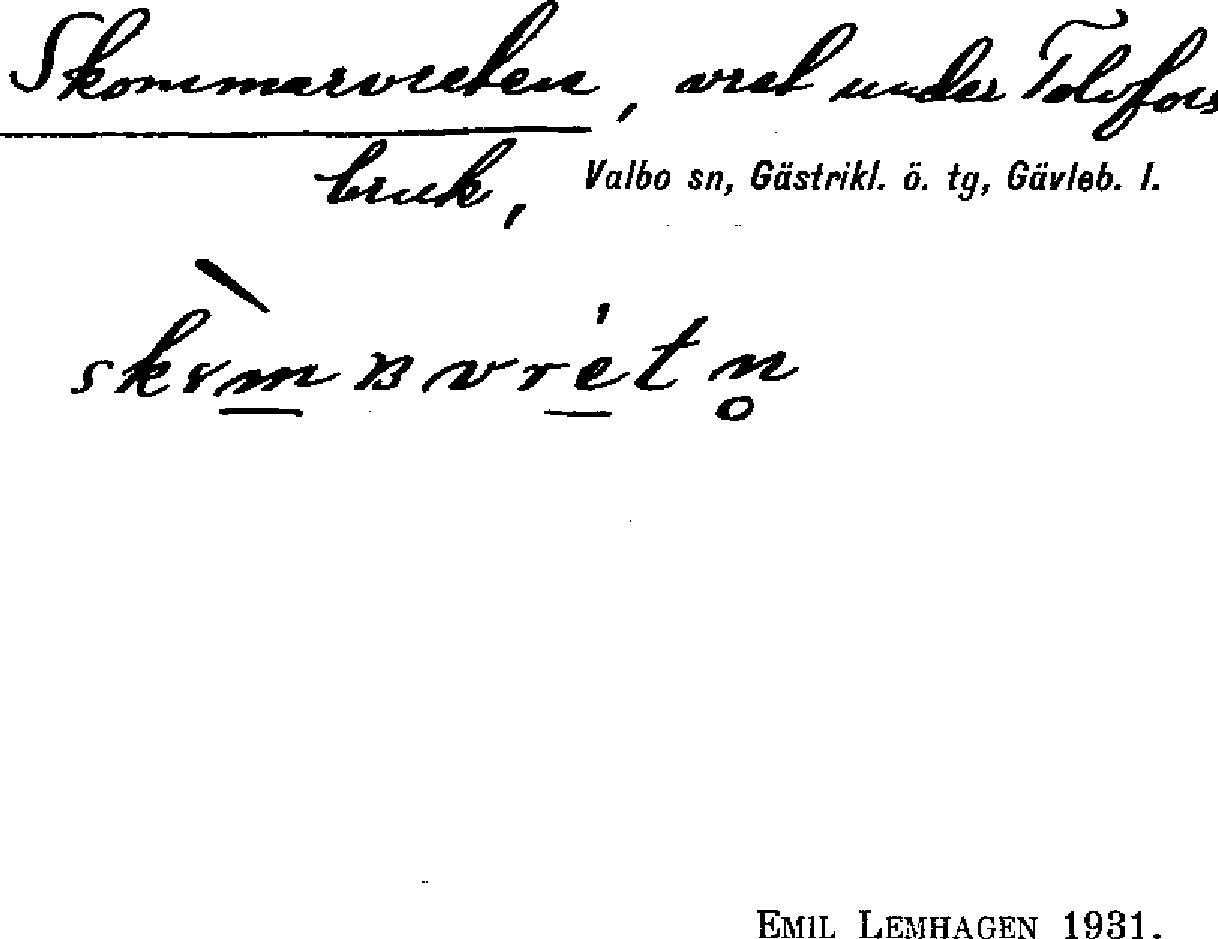 Skommarvreten, vret under Tolvfors
bruk, Valbo sn, Gästrikl. ö. tg, Gävleb. l.
EMIL LEMHAGEN 1931.